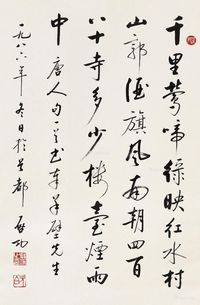 千里莺啼绿映红水村
山郭酒旗风南朝四百
八十寺多少楼台煙雨
中 唐人句
一九八六年冬日於首都 启功